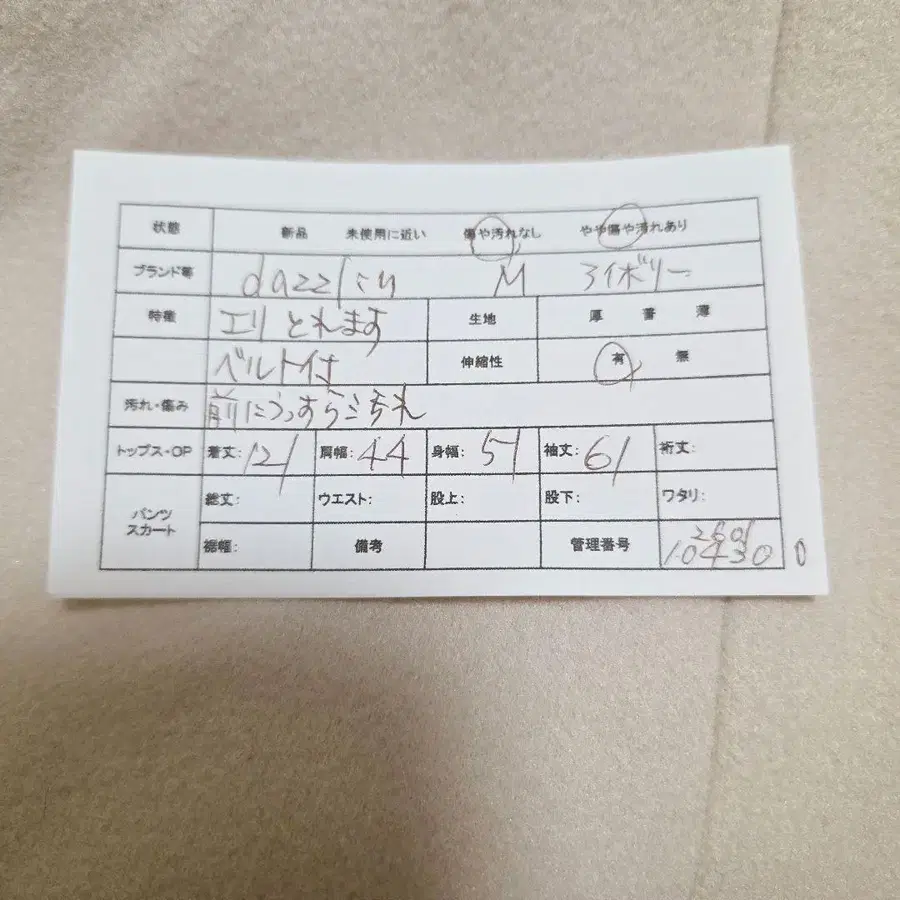 状態 新品 未使用に近い 傷や汚れなし やや傷や汚れあり
ブランド等 dazzlin M アイボリー
特徴 エリとれます 生地 厚 普 薄
ベルト付 伸縮性 有 無
汚れ・傷み 前にうっすらよごれ
トップス・OP 着丈:121 肩幅:44 身幅:51 袖丈:61 裄丈:
パンツ スカート 総丈: ウエスト: 股上: 股下: ワタリ:
裾幅: 備考 管理番号 2601
10430 0